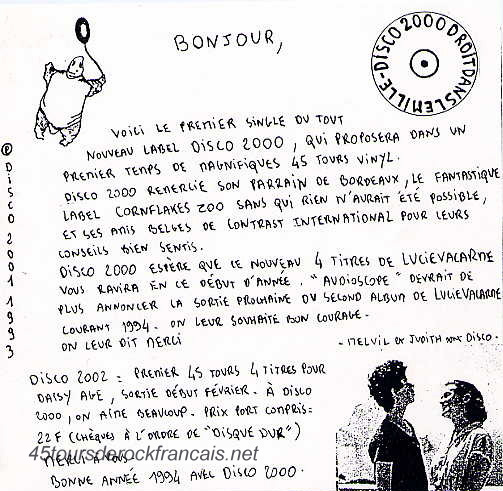 BONJOUR,
DISCO 2000 DROIT DANS LE MILLE -
VOICI LE PREMIER SINGLE DU TOUT
NOUVEAU LABEL DISCO 2000, QUI PROPOSERA DANS UN
PREMIER TEMPS DE MAGNIFIQUES 45 TOURS VINYL.
DISCO 2000 REMERCIE SON PARRAIN DE BORDEAUX, LE FANTASTIQUE
LABEL CORNFLAKES ZOO SANS QUI RIEN N'AURAIT ÉTÉ POSSIBLE,
ET SES AMIS BELGES DE CONTRAST INTERNATIONAL POUR LEURS
CONSEILS BIEN SENTIS.
DISCO 2000 ESPÈRE QUE CE NOUVEAU 4 TITRES DE LUCIEVACARME
VOUS RAVIRA EN CE DÉBUT D'ANNÉE. "AUDIOSCOPE" DEVRAIT DE
PLUS ANNONCER LA SORTIE PROCHAINE DU SECOND ALBUM DE LUCIEVACARME
COURANT 1994. ON LEUR SOUHAITE BON COURAGE.
ON LEUR DIT MERCI
- MELVIL & JUDITH DISCO.
DISCO 2002 = PREMIER 45 TOURS 4 TITRES POUR
DAISY AGE, SORTIE DÉBUT FÉVRIER. À DISCO
2000, ON AIME BEAUCOUP. PRIX PORT COMPRIS =
22 F (CHÈQUES À L'ORDRE DE "DISQUE DUR")
MERCI À TOUS
BONNE ANNÉE 1994 AVEC DISCO 2000.
℗ DISCO 2001 1993
45toursderockfrancais.net